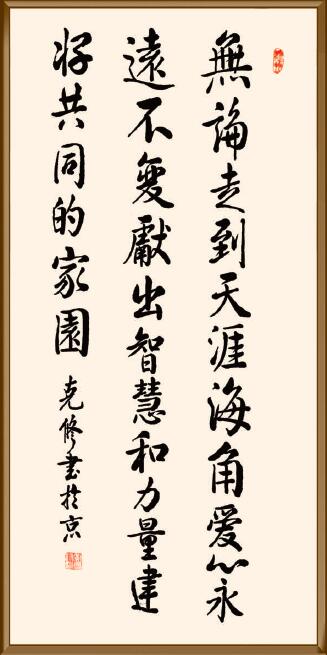 無論走到天涯海角愛心永
遠不變獻出智慧和力量建
好共同的家園
克修書於京